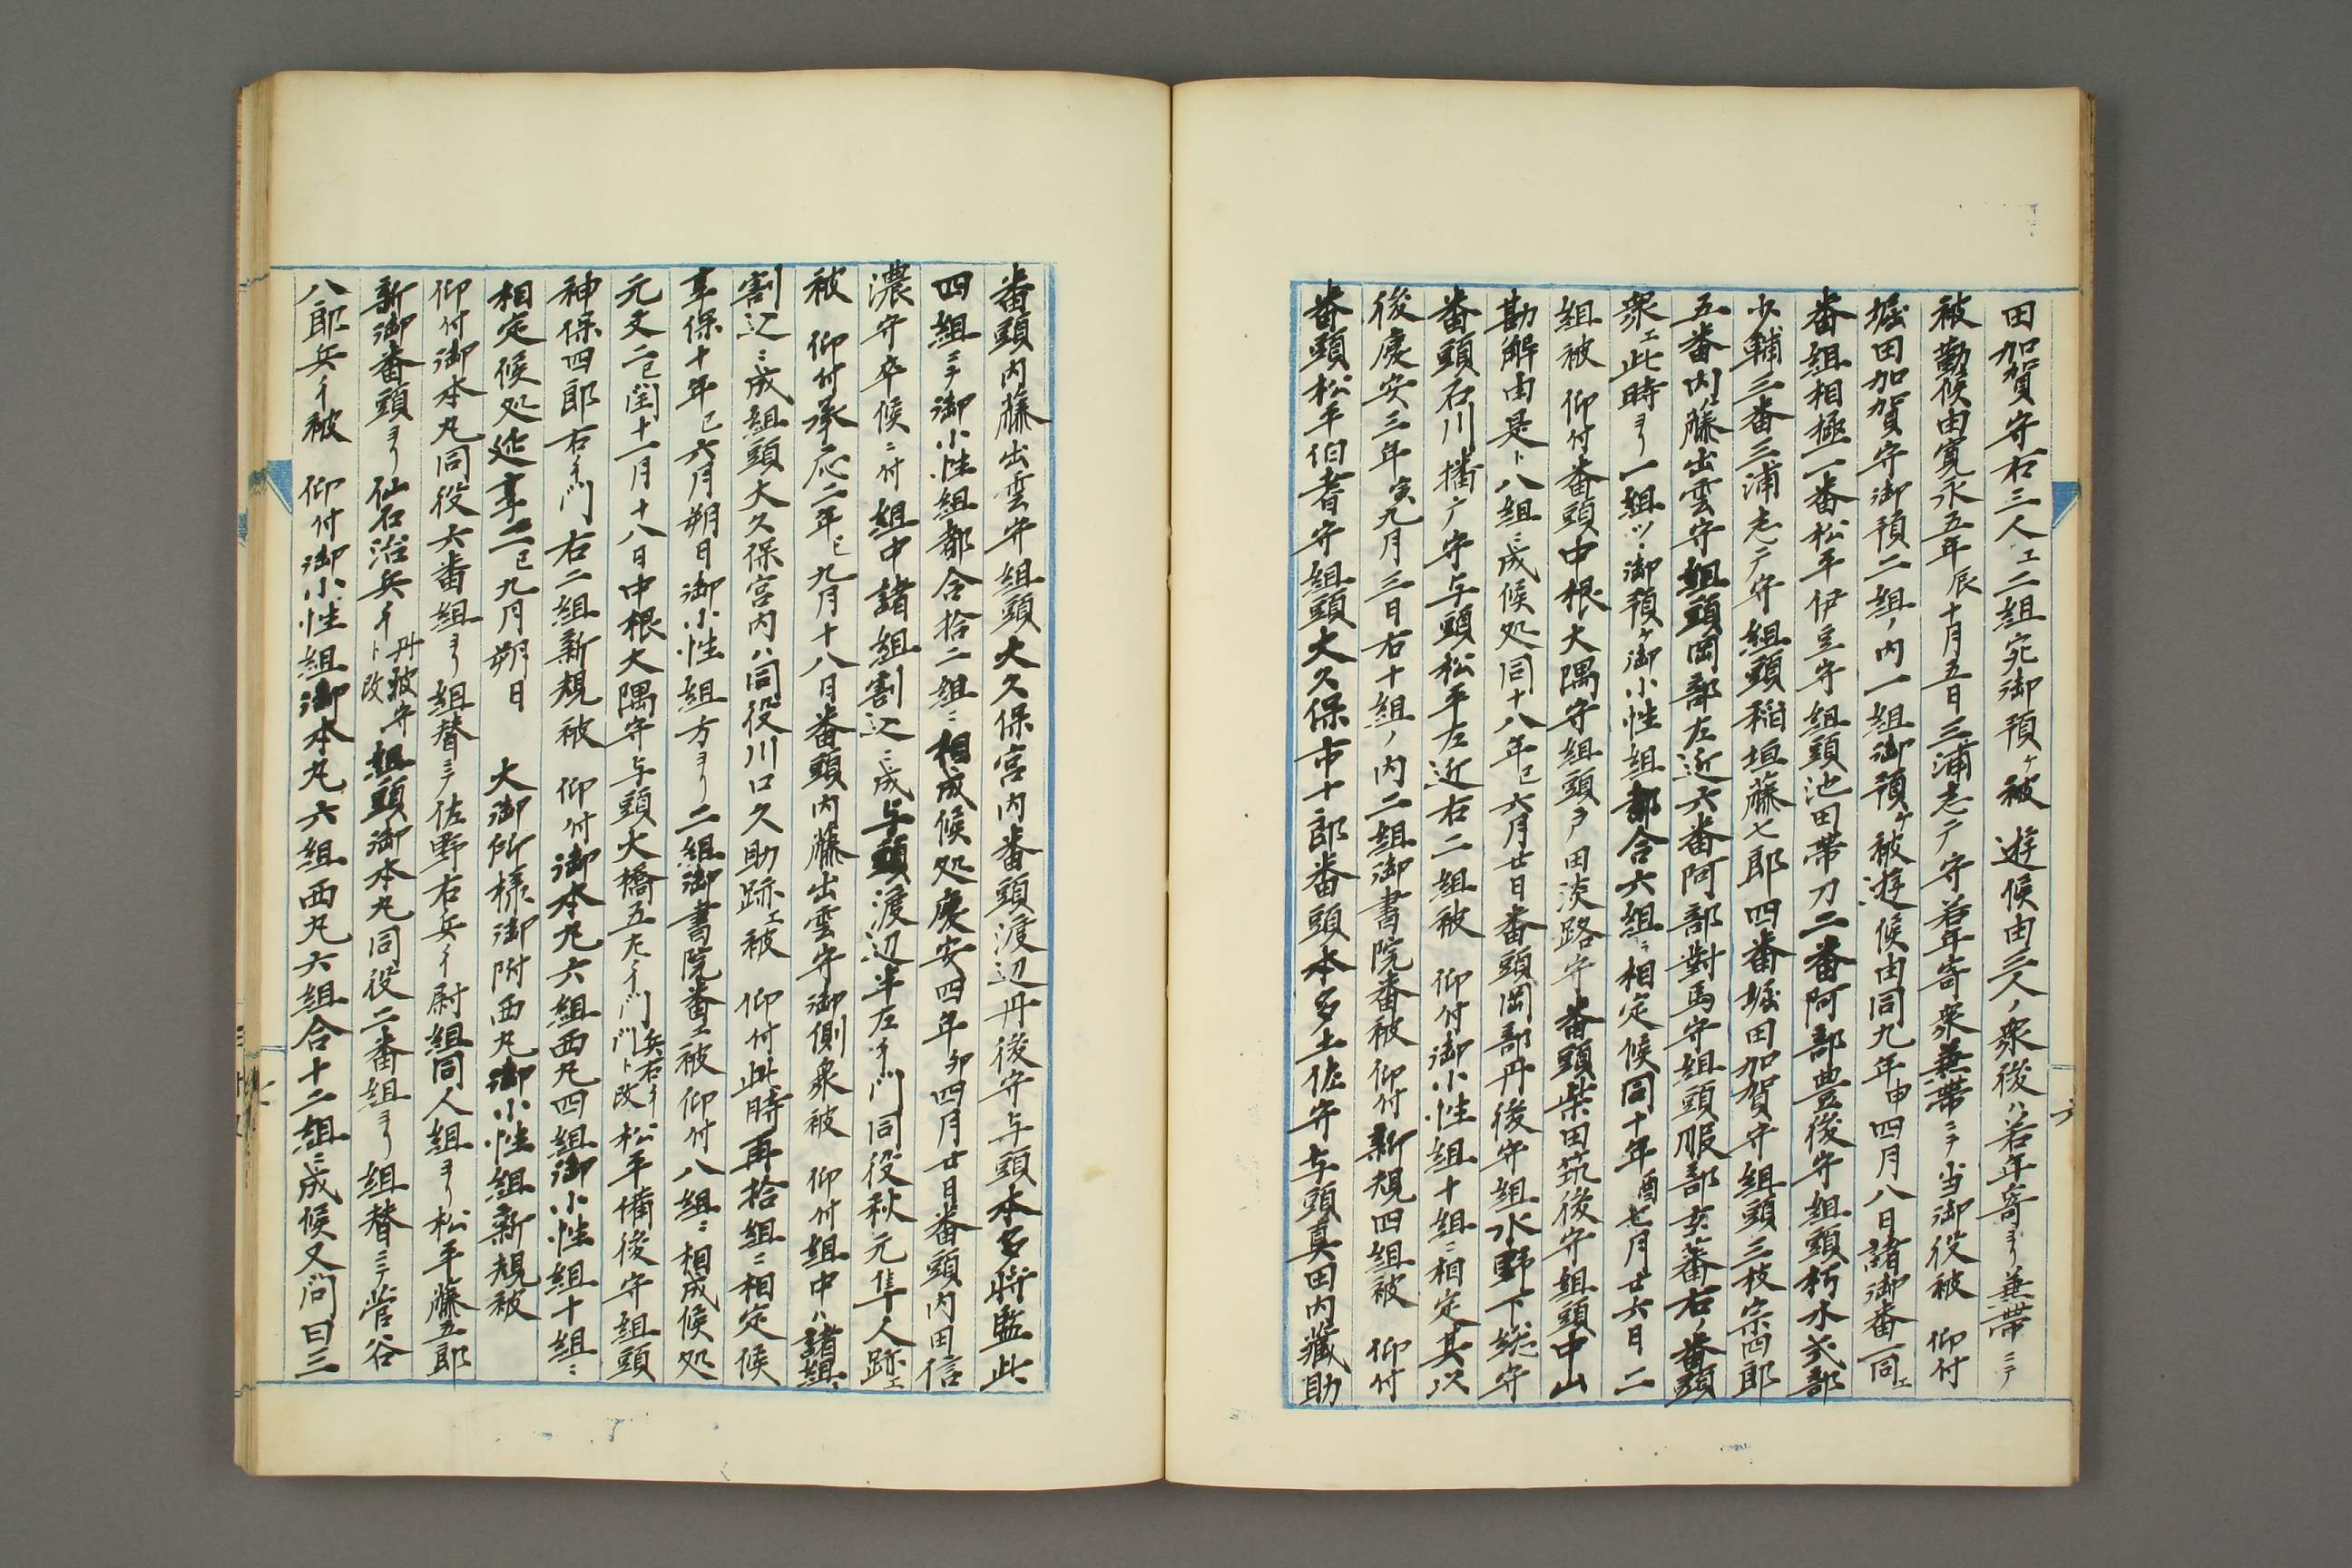 田加賀守右三人エ二組宛御預ヶ被　遊候由三人ノ衆後ハ若年寄ヨリ兼帯ニテ
被勤候由寛永五年辰十月五日三浦志广守若年寄衆兼帯ニテ当御役被　仰付
堀田加賀守御預二組ノ内一組御預ヶ被遊候由同九年申四月八日諸御番一同エ
番組相極一番松平伊豆守組頭池田帯刀二番阿部豊後守組頭朽木式部
少輔三番三浦志广守組頭稲垣藤七郎四番堀田加賀守組頭三枝宗四郎
五番内藤出雲守組頭岡部左近六番阿部對馬守組頭服部玄蕃右ノ番頭
衆エ此時ヨリ一組ツヽ御預ヶ御小性組都合六組ニ相定候同十年酉七月廿六日二
組被　仰付番頭中根大隅守組頭戸田淡路守番頭柴田筑後守組頭中山
勘解由是ト八組ニ成候処同十八年巳六月廿日番頭岡部丹後守組水野下総守
番頭石川播广守与頭松平左近右二組被　仰付御小性組十組ニ相定其次
後慶安三年寅九月三日右十組ノ内二組御書院番被　仰付新規四組被　仰付
番頭松平伯耆守組頭大久保市十郎番頭本多土佐守与頭真田内蔵助
番頭内藤出雲守組頭大久保宮内番頭渡辺丹後守与頭本多将監此
四組ニテ御小性組都合拾二組ニ相成候処慶安四年卯四月廿日番頭内田信
濃守卒候ニ付組中諸組割込ニ成与頭渡辺半左ヱ門同役秋元隼人跡エ
被　仰付承応二年巳九月十八日番頭内藤出雲守御側衆被　仰付組中ハ諸組
割込ニ成組頭大久保宮内ハ同役川口久助跡エ被　仰付此時再拾組ニ相定候
享保十年巳六月朔日御小性組方ヨリ二組御書院番エ被　仰付八組ニ相成候処
元文二巳閏十一月十八日中根大隅守与頭大橋五左ヱ門兵右ヱ門ト改松平備後守組頭
神保四郎右ヱ門右二組新規被　仰付御本丸六組西丸四組御小性組十組ニ
相定候処延享二巳九月朔日　大御所様御附西丸御小性組新規被
仰付御本丸同役六番組ヨリ組替ニテ佐野右兵ヱ尉組同人組ヨリ松平藤五郎
新御番頭ヨリ仙石治兵ヱ丹波守ト改組頭御本丸同役二番組ヨリ組替ニテ菅谷
八郎兵ヱ被　仰付御小性組御本丸六組西丸六組合十二組ニ成候又問曰三